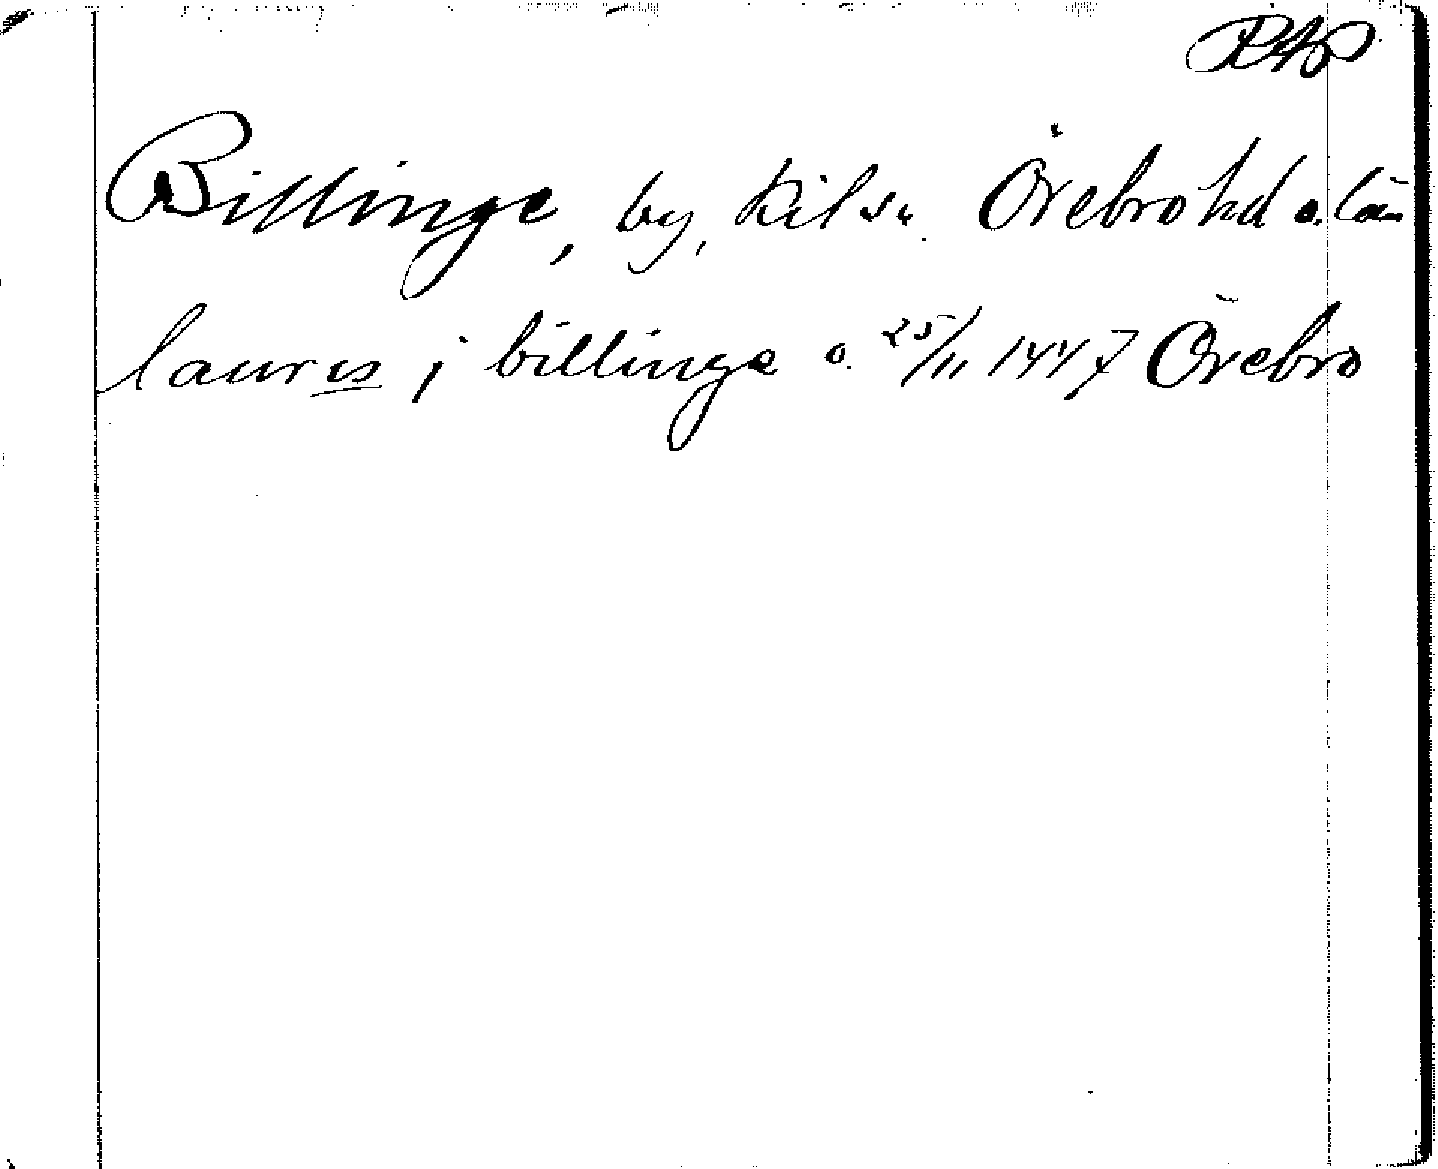 RAP
Billinge, by, Kil sn. Örebro hd o. län
laur is j billinge o. 25/11 1447 Örebro